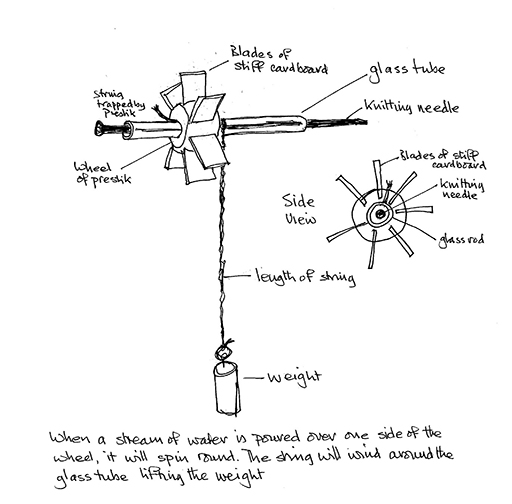 Blades of
stiff cardboard
glass tube
String
trapped by
Prestik
Knitting needle
Wheel
of prestik
Blades of stiff
cardboard
Knitting
needle
glass rod
Side
View
length of string
Weight
When a stream of water is poured over one side of the
wheel, it will spin round. The string will wind around the
glass tube lifting the weight